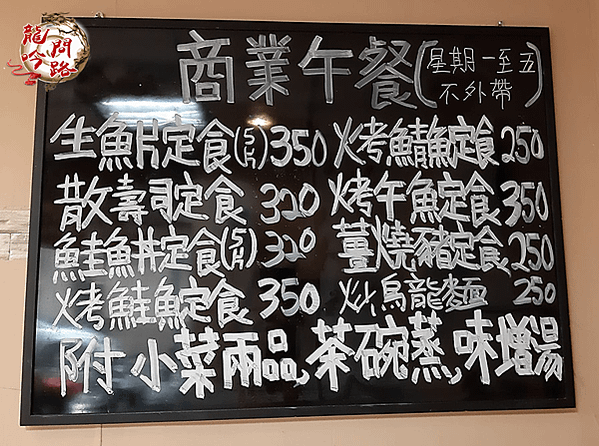 龍吟
問路
商業午餐(星期一至五
不外帶)
生魚片定食(5片)350
火考鯖魚定食250
散壽司定食 320
烤午魚定食350
鮭魚丼定食(5片)320
薑燒豬定食250
火考鮭魚定食 350
炒烏龍麵 250
附小菜兩品,茶碗蒸,味增湯